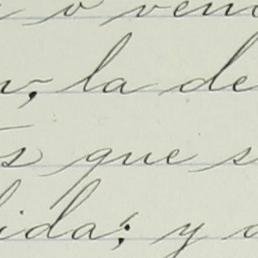 o ven
, la de
s que s
ida; y